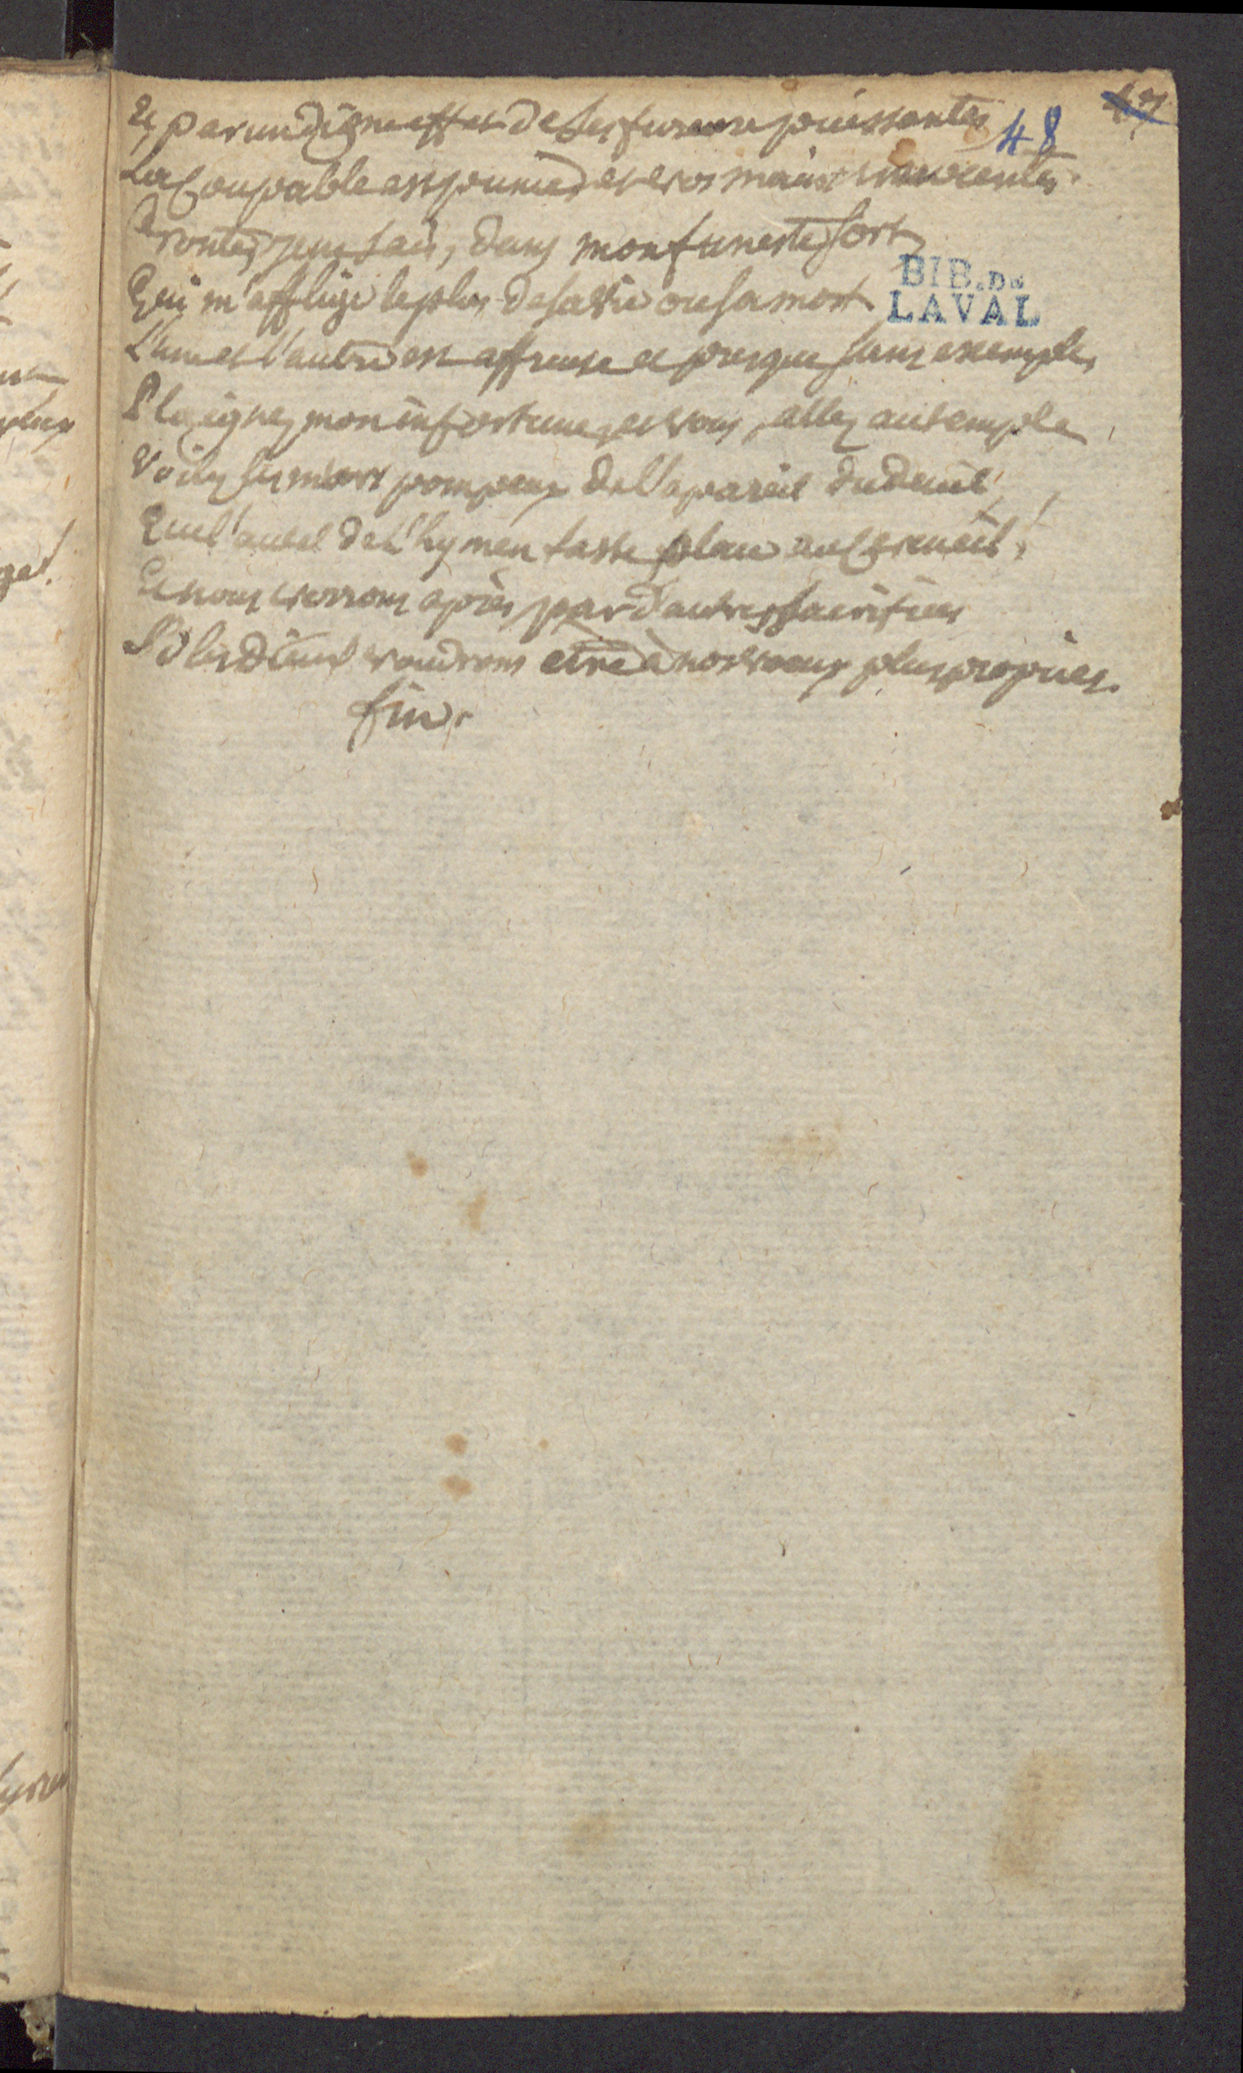 47
48
Et par un digne effet de Ses fureurs puissantes
La Coupable est punie, et vos mains innocentes.
Oronte, je ne sais, dans mon funeste sort,
Qui m'afflige le plus de sa vie ou sa mort
L'une et l'autre est affreuse et presque sans exemple,
Plaignez mon infortune, et vous, allez au temple
Voiler les murs pompeux de l'apareil du deuil,
Que l'autel de l'hymen fasse place au Cercueil,
Et nous verrons après par d'autres Sacrifices
Si les Dieux voudront etre à nos voeux plus propices.
fin.
BIB. DE
LAVAL